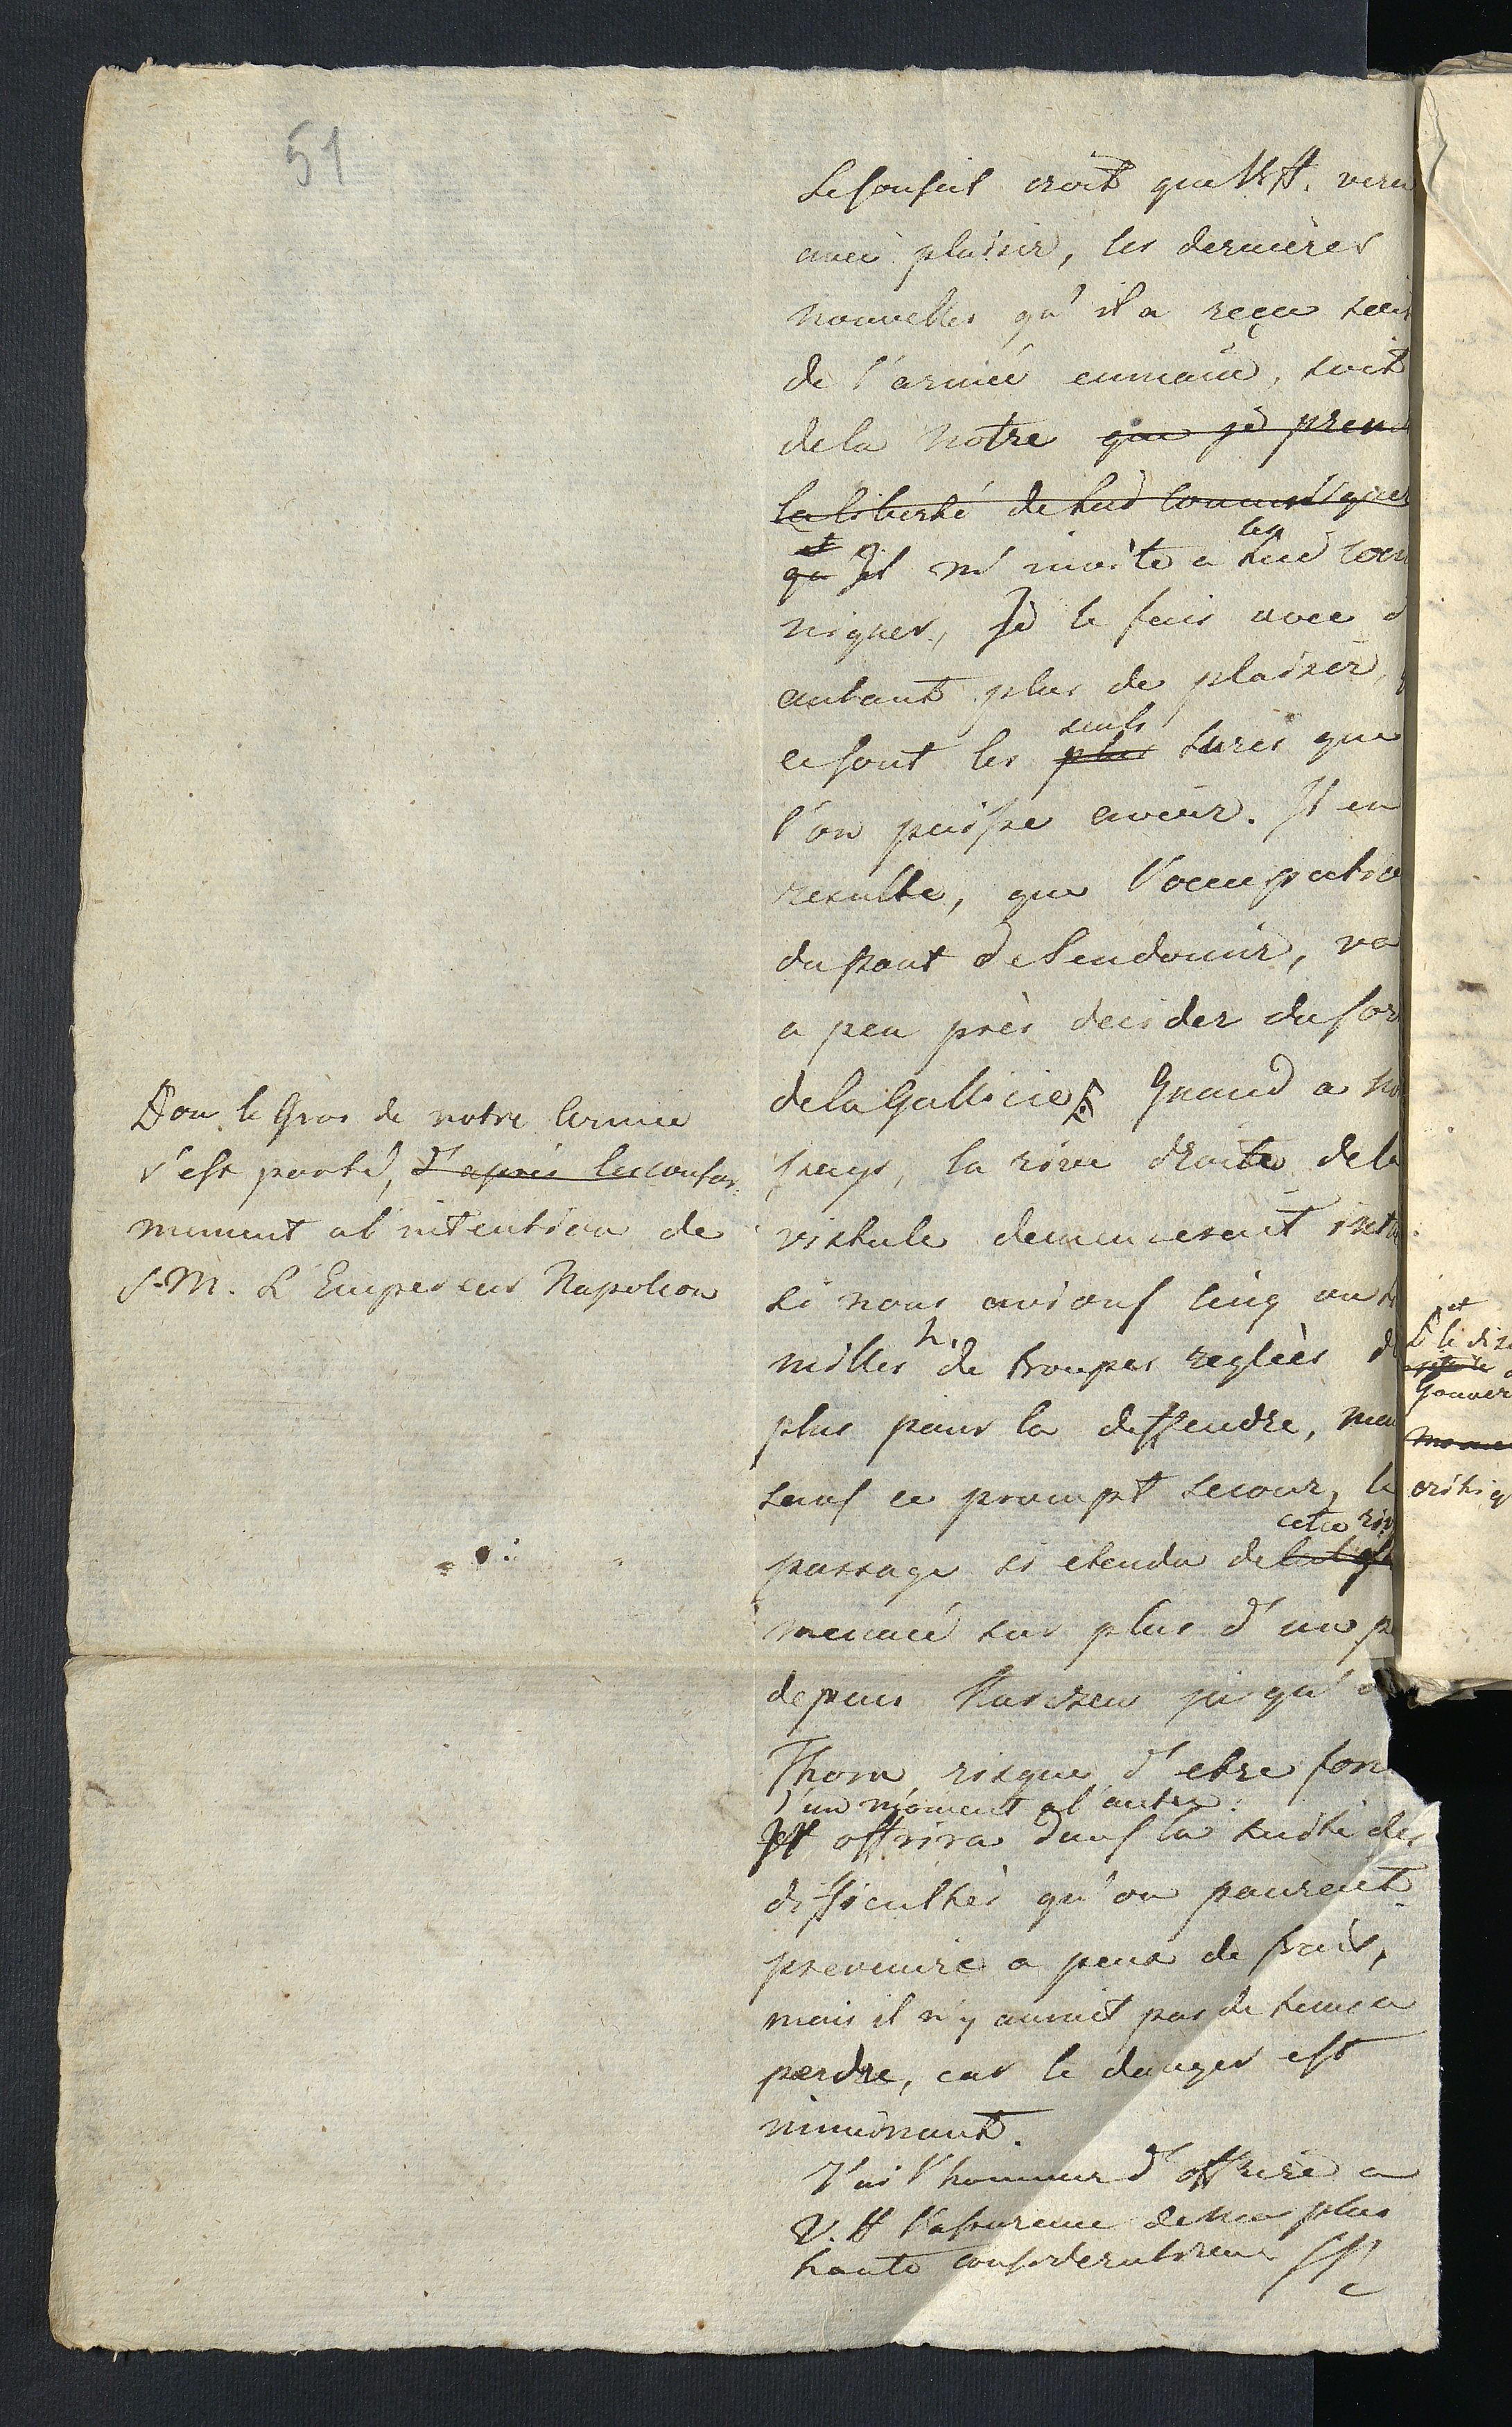 51
Le Conseil croit que V.A. verr
avec plaisir, les dernières
nouvelles qu'il a reçu soit
de l'armée ennemie, soit
de la notre que je pren
la liberté de lui communiquer
et
les
qu Il m'invite a lui com
niquer, Je le fais avec d
autant plus de plaisir,
seuls
ce sont les plus sures que
l'on puisse avoir. Il en
resulte, que l'occupatio
du pont de Sendomir, va
a peu près decider du sor
de la Gallicie Quand a no
pays, la rive droite de la
vistule demeureroit
si nous avions cinq ou
milles h. de troupes reglées d
plus pour la deffendre, mai
sauf ce prompt secour, le
cette riv
passage si etendu de
menacé sur plus d'un p
depuis jusqu'a
Thorn risque d'etre for
d'un moment a l'autre.
Il offrira dans la suite des
difficultés qu'on pouroit
prevenire a peux de frais,
mais il n'y auroit pas de tems a
perdre, car le danger est
imminant.
J'ai l'honneur d'offrire a
V. A l'assurence de ma plus
haute consideration
D'ou le Gros de notre Armée
s'est porté, d'apres les confor-
mement a l'intention de
S.M. L'Empereur Napoleon
et
Gouver
critiq